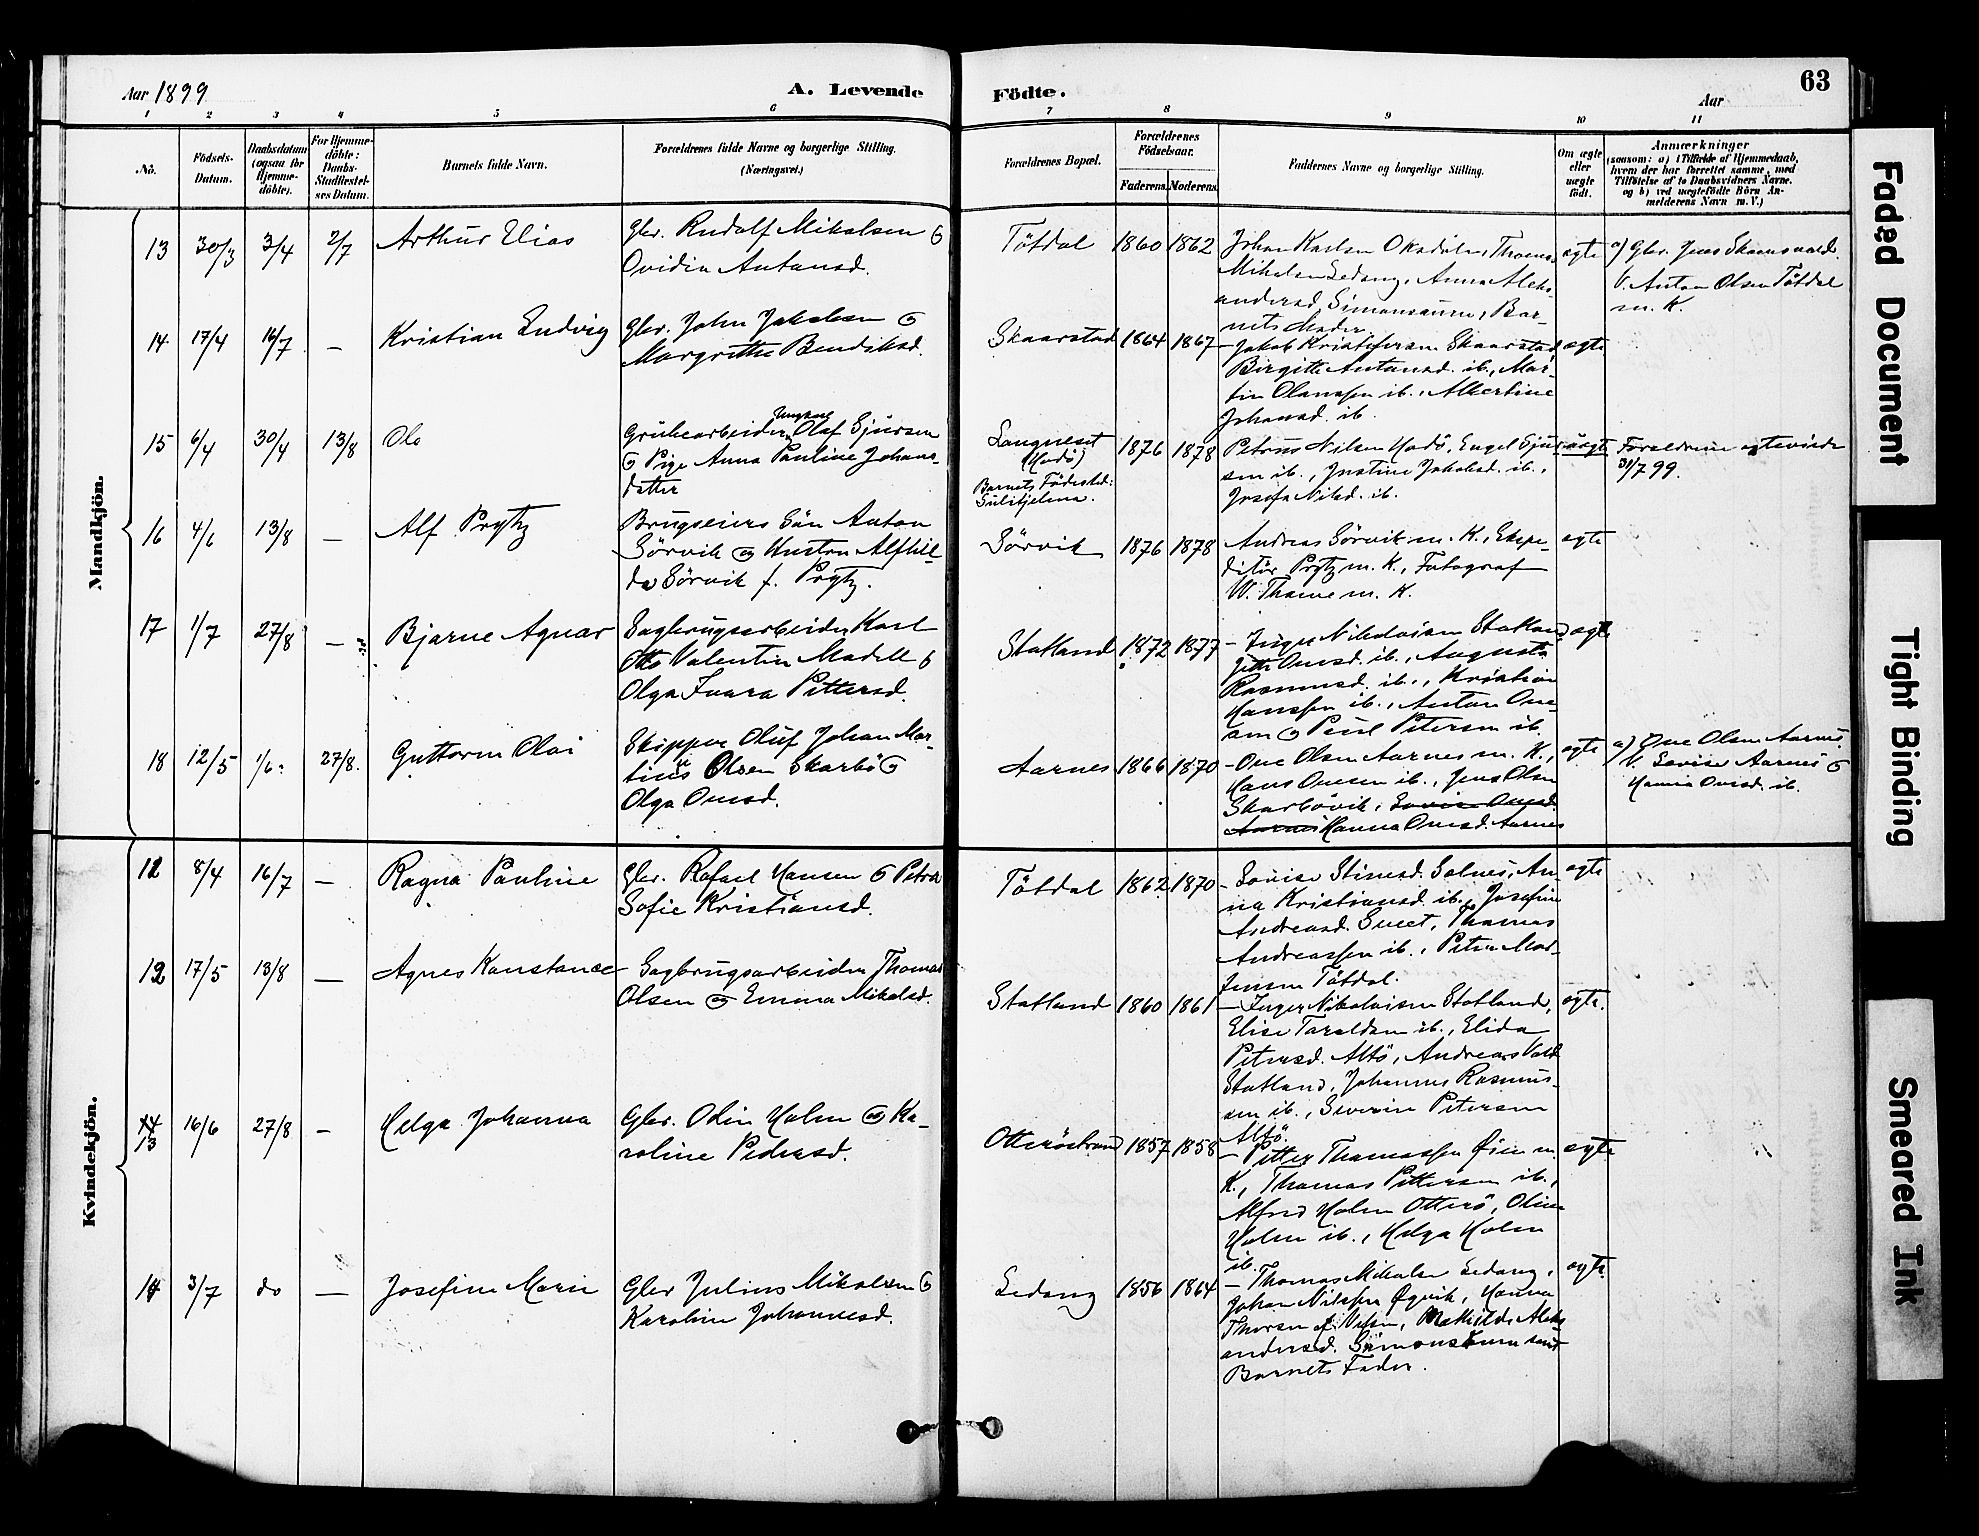 Aar 1899
A. Levende
Födte.
Aar
63
1 2 3 4 5 6 7 8 9 10 11
No.
Födsels-Datum.
Daabsdatum (ogsaa for Hjemme-döbte).
For Hjemme-döbte: Daabs-Stadfæstel-ses Datum.
Barnets fulde Navn.
Forældrenes fulde Navne og borgerlige Stilling.
(Næringsvei.)
Forældrenes Bopæl.
Forældrenes Födselsaar.
Faderens. Moderens.
Faddernes Navne og borgerlige Stilling.
Om ægte eller uægte födt.
Anmærkninger
(saasom: a) i Tilfælde af Hjemmedaab, hvem der har forrettet samme, med Tilföielse af to Daabsvidners Navne. og b) ved uægtefödte Börn An-melderens Navn m. V.)
Mandkjön.
13 30/3 3/4 2/7 Arthur Elias
Gbr. Rudolf Mikalsen &
Ovidia Antonsd.
Tötdal 1860 1862
Johan Karlsen Oksdölen, Thomas
Mikalsen Sedang, Anna Aleks-
andersd. Simonsaunn, Bar-
nets Moder.
ægte
a) Gbr. Jens Skomsvold.
V. Anton Olsen Tötdal
m. K.
14 17/4 16/7 — Kristian Ludvig
Gbr. John Jakobsen &
Margrethe Bendiksd.
Skaarstad 1864 1867
- Jakob Kristofersen Skaarstad,
Birgitte Antonsd. ib., Mar-
tin Olaussen ib., Albertine
Johansd. ib.
ægte
15 6/4 30/4 13/8 Ole
Grubearbeider Ungkarl Olaf Sjursen
& Pige Anna Pauline Johans-
datter
Langneset
(Hodö)
Barnets Födested:
Sulitjelma.
1876 1878
Petrus Nilsen Hodö, Engel Sjur-
sen ib., Justine Jakobsd. ib.,
Josefa Nilsd. ib.
uægte
Forældrene ægteviede
31/7 99.
16 4/6 13/8 — Alf Prytz
Brugseiers Sön Anton
Sörvik og Hustru Alfhil-
da Sörvik f. Prytz.
Sörvik 1876 1878
Andreas Sörvik m. K., Ekspe-
ditör Prytz m. K., Fotograf
W. Thorne m. K.
ægte
17 1/7 27/8 — Bjarne Agnar
Sagbrugsarbeider Karl
Otto Valentin Modell &
Olga Inara Pettersd.
Statland 1872 1877
- Inger Nikolaisen Statland,
Jette Omsd. ib., Augusta
Rasmusd. ib., Kristian
Hanssen ib., Anton One-
am & Paul Petersen ib.
ægte
18 12/5 1/6 27/8. Guttorm Olai
Skipper Oluf Johan Mar-
tinus Olsen Skorbö &
Olga Onesd.
Aarnes 1866 1870
- One Olsen Aarnes m. K.,
Hans Onesen ib., Jens Olsen
Skarbövik, Lovise Onesd.
Aarnes Hanna Onesd. Aarnes
ægte
a) One Olsen Aarnes.
V. Lovise Aarnes &
Hanna Onesd. ib.
Kvindekjön.
12 8/4 16/7 — Ragna Pauline
Gbr. Rafael Hansen & Petra
Sofie Kristiansd.
Tötdal 1862 1870
- Lovise Stinesd. Solnes, An-
na Kristiansd. ib., Josefine
Andreasd. Sveet, Thomas
Andreassen ib., Peter Mar-
Jensen Tötdal.
ægte
12 17/5 13/8 — Agnes Konstance
- Sagbrugsarbeider Thomas
Olsen og Emma Mikalsd.
Statland 1860 1861
- Inger Nikolaisen Statland,
Elise Taraldsen ib., Elida
Petersd. Altö, Andreas Vold
Statland, Johannes Rasmus-
sen ib., Severin Petersen
Altö.
ægte.
13 16/6 27/8 — Helga Johanna
Gbr. Odin Holm og Ka-
roline Pedersd.
Otteröstrand 1857 1858
- Petter Thomassen Öien m.
K., Thomas Pettersen ib.,
Alfred Holm Otterö, Oline
Holm ib., Helga Holm
ib.
ægte
14 3/7 do — Josefine Marie
Gbr Julius Mikalsen &
Karoline Johannesd.
Sedang 1856 1864
- Thomas Mikalsen Sedang,
Johan Nilssen Ögvik, Hanna
Thorsen f. Nilsen, Mathilde Aleks-
andersd. Simonsaunn samt
Barnets Fader.
ægte.
Faded Document
Tight Binding
Smeared Ink